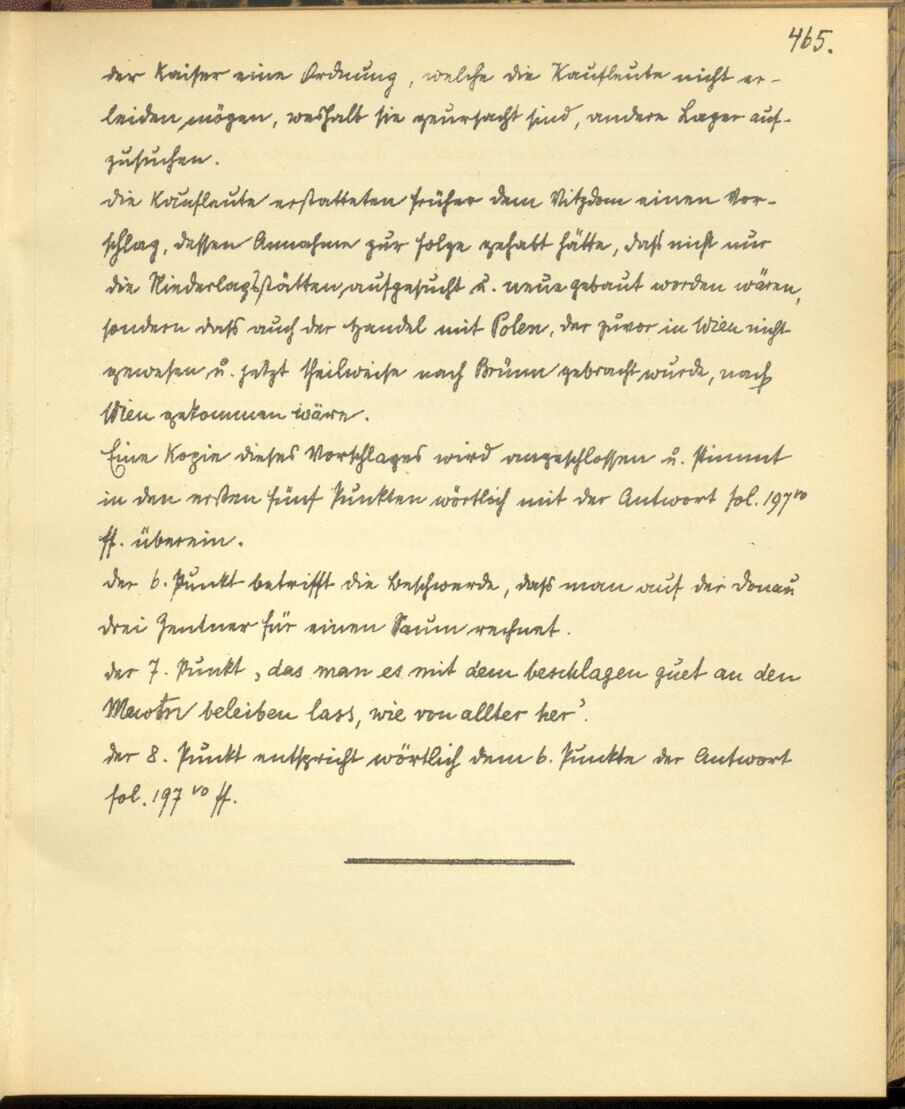 465.
der Kaiser eine Ordnung, welche die Kaufleute nicht er-
leiden mögen, weshalb sie geursacht sind, andere Lager auf-
zusuchen.
Die Kaufleute erstatteten früher dem Vitzdom einen Vor-
schlag, dessen Annahme zur Folge gehabt hätte, daß nicht nur
die Niederlagsstätten aufgesucht u. neue gebaut worden wären,
sondern daß auch der Handel mit Polen, der zuvor in Wien nicht
gewesen u. jetzt theilweise nach Brünn gebracht wurde, nach
Wien gekommen wäre.
Eine Kopie dieses Vorschlages wird angeschlossen u. stimmt
in den ersten fünf Punkten wörtlich mit der Antwort fol. 197 vo
ff. überein.
Der 6. Punkt betrifft die Beschwerde, daß man auf der Donau
drei Zentner für einen Saum rechnet.
Der 7. Punkt „das man es mit dem beschlagen guet an den
Mautn beleiben lass, wie von allter her'.
Der 8. Punkt entspricht wörtlich dem 6. Punkte der Antwort
fol. 197 vo ff.